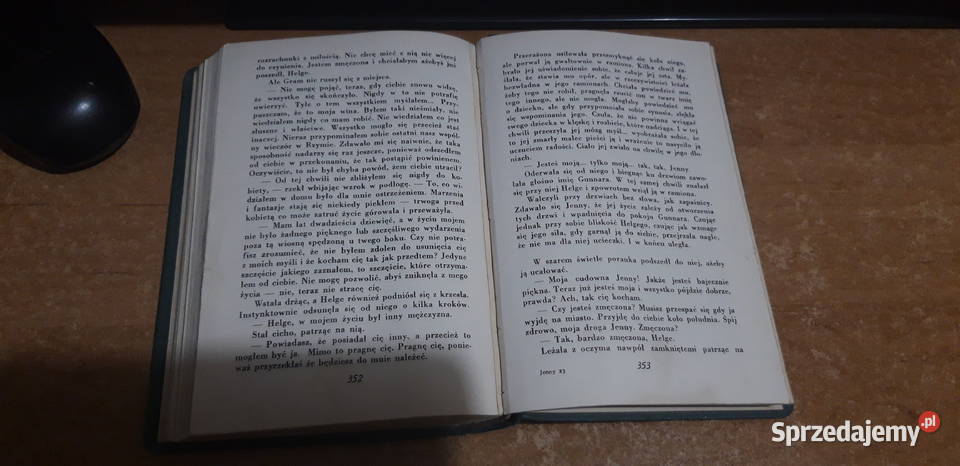 rozrachunki z miłością. Nie chcę mieć z nią nic więcej
do czynienia. Jestem zmęczona i chciałabym ażebyś już
poszedł, Helge.
Ale Gram nie ruszył się z miejsca.
— Nie mogę pojąć, teraz, gdy ciebie znowu widzę,
że wszystko się skończyło. Nigdy w to nie potrafię
uwierzyć. Tyle o tem wszystkiem myślałem... Przy-
puszczam, że to moja wina. Byłem taki nieśmiały, nie
wiedziałem nigdy co mam robić. Nie wiedziałem co jest
słuszne i właściwe. Wszystko mogło się przecież stać
inaczej. Nieraz przypominałem sobie ostatni nasz wspól-
ny wieczór w Rzymie. Zdawało mi się naiwnie, że taka
sposobność nadarzy się raz jeszcze, ponieważ odszedłem
od ciebie w przekonaniu, że tak postąpić powinienem.
Oczywiście, to nie był chyba powód, żem ciebie utracił?
— Od tej chwili nie zbliżyłem się nigdy do ko-
biety, — rzekł wbijając wzrok w podłogę. — To, co wi-
działem w domu było dla mnie ostrzeżeniem. Marzenia
i fantazje stają się niekiedy piekłem — trwoga przed
kobietą co może zatruć życie górowała i przeważyła.
— Mam lat dwadzieścia dziewięć, a w życiu mojem
nie było żadnego pięknego lub szczęśliwego wydarzenia
poza tą wiosną spędzoną u twego boku. Czy nie potra-
fisz zrozumieć, że nie byłem zdolen do usunięcia cię
z moich myśli i że kocham cię tak jak przedtem? Jedyne
szczęście jakiego zaznałem, to szczęście, które otrzyma-
łem od ciebie. Nie mogę pozwolić, abyś zniknęła z mego
życia — nie, teraz nie stracę cię.
Wstała drżąc, a Helge również podniósł się z krzesła.
Instynktownie odsunęła się od niego o kilka kroków.
— Helge, w mojem życiu był inny mężczyzna.
Stał cicho, patrząc na nią.
— Powiadasz, że posiadał cię inny, a przecież to
mogłem być ja. Mimo to pragnę cię. Pragnę cię, ponie-
waż przyrzekłaś że będziesz do mnie należeć.
352
Przerażona usiłowała przesmyknąć się koło niego,
ale porwał ją gwałtownie w ramiona. Kilka chwil za-
brało jej uświadomienie sobie, że całuje jej usta. My-
ślała, że stawia mu opór, ale w rzeczywistości leżała
bezwładna w jego ramionach. Chciała powiedzieć mu,
żeby tego nie robił, pragnęła rzucić mu w twarz imię
tego innego, ale nie mogła. Mogłaby powiedzieć mu
o dziecku, ale gdy przypominała sobie synusia, zlękła
się wspomnienia jego. Czuła, że nie powinna wzywać
swego dziecka w klęskę i rozbicie, które nadciąga. I w tej
chwili przeszyła jej mózg myśl... wyobraziła sobie, że
to jej zmarły malec pieści ją i wrażenie to nasnyło ją
uczuciem radości. Ciało jej zwisło na chwilę w jego dło-
niach.
— Jesteś moją... tylko moją... tak, tak, Jenny
Oderwała się od niego i biegnąc ku drzwiom zawo-
łała głośno imię Gunnara. W tej samej chwili znalazł
się przy niej Helge i zpowrotem wziął ją w ramiona.
Walczyli przy drzwiach bez słowa, jak zapaśnicy.
Zdawało się Jenny, że jej życie zależy od otworzenia
tych drzwi i wpadnięcia do pokoju Gunnara. Czując
jednak przy sobie bliskość Helgego, czując jak wzmaga
się jego siła, gdy garnął ją do siebie, przejrzała nagle,
że nie ma dla niej ucieczki. I w końcu uległa.
W szarem świetle poranka podszedł do niej, ażeby
ją ucałować.
— Moja cudowna Jenny! Jakże jesteś bajecznie
piękna. Teraz już jesteś moja i wszystko pójdzie dobrze,
prawda? Ach, tak cię kocham.
— Czy jesteś zmęczona? Musisz przespać się gdy ja
wyjdę na miasto. Przyjdę do ciebie koło południa. Śpij
zdrowo, moja droga Jenny. Zmęczona?
— Tak, bardzo zmęczona, Helge.
Leżała z oczyma nawpół zamkniętemi patrząc na
Jenny 23
353
Sprzedajemy.pl